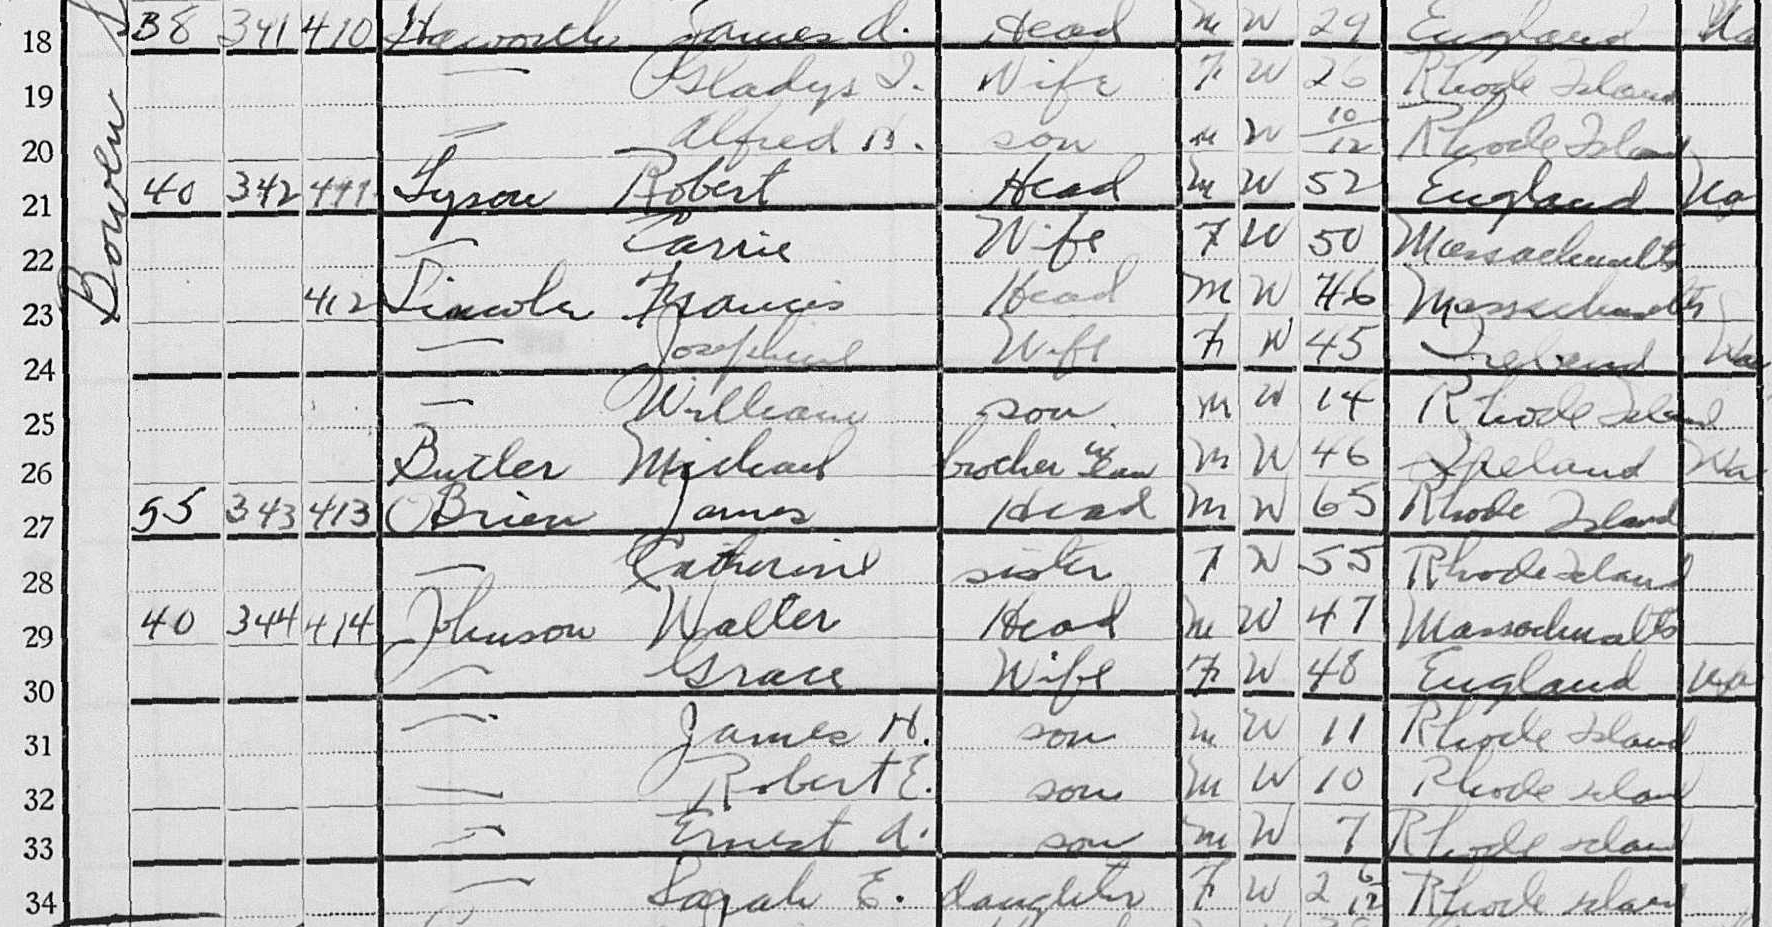 Bowen
18 38 341 410 Haworth James A. Head M W 29 England Na
19 — Gladys I. Wife F W 26 Rhode Island
20 — Alfred H. son M W 10/12 Rhode Island
21 40 342 411 Tyson Robert Head M W 52 England Na
22 — Carrie Wife F W 50 Massachusetts
23 412 Lincoln Francis Head M W 46 Massachusetts
24 — Josephine Wife F W 45 Ireland Na
25 — William son M W 14 Rhode Island
26 Butler Michael brother in law M W 46 Ireland Na
27 55 343 413 OBrien James Head M W 65 Rhode Island
28 — Catherine sister F W 55 Rhode Island
29 40 344 414 Johnson Walter Head M W 47 Massachusetts
30 — Grace Wife F W 48 England Na
31 — James H. son M W 11 Rhode Island
32 — Robert E. son M W 10 Rhode Island
33 — Ernest A. son M W 7 Rhode Island
34 — Sarah E. daughter F W 2 6/12 Rhode Island